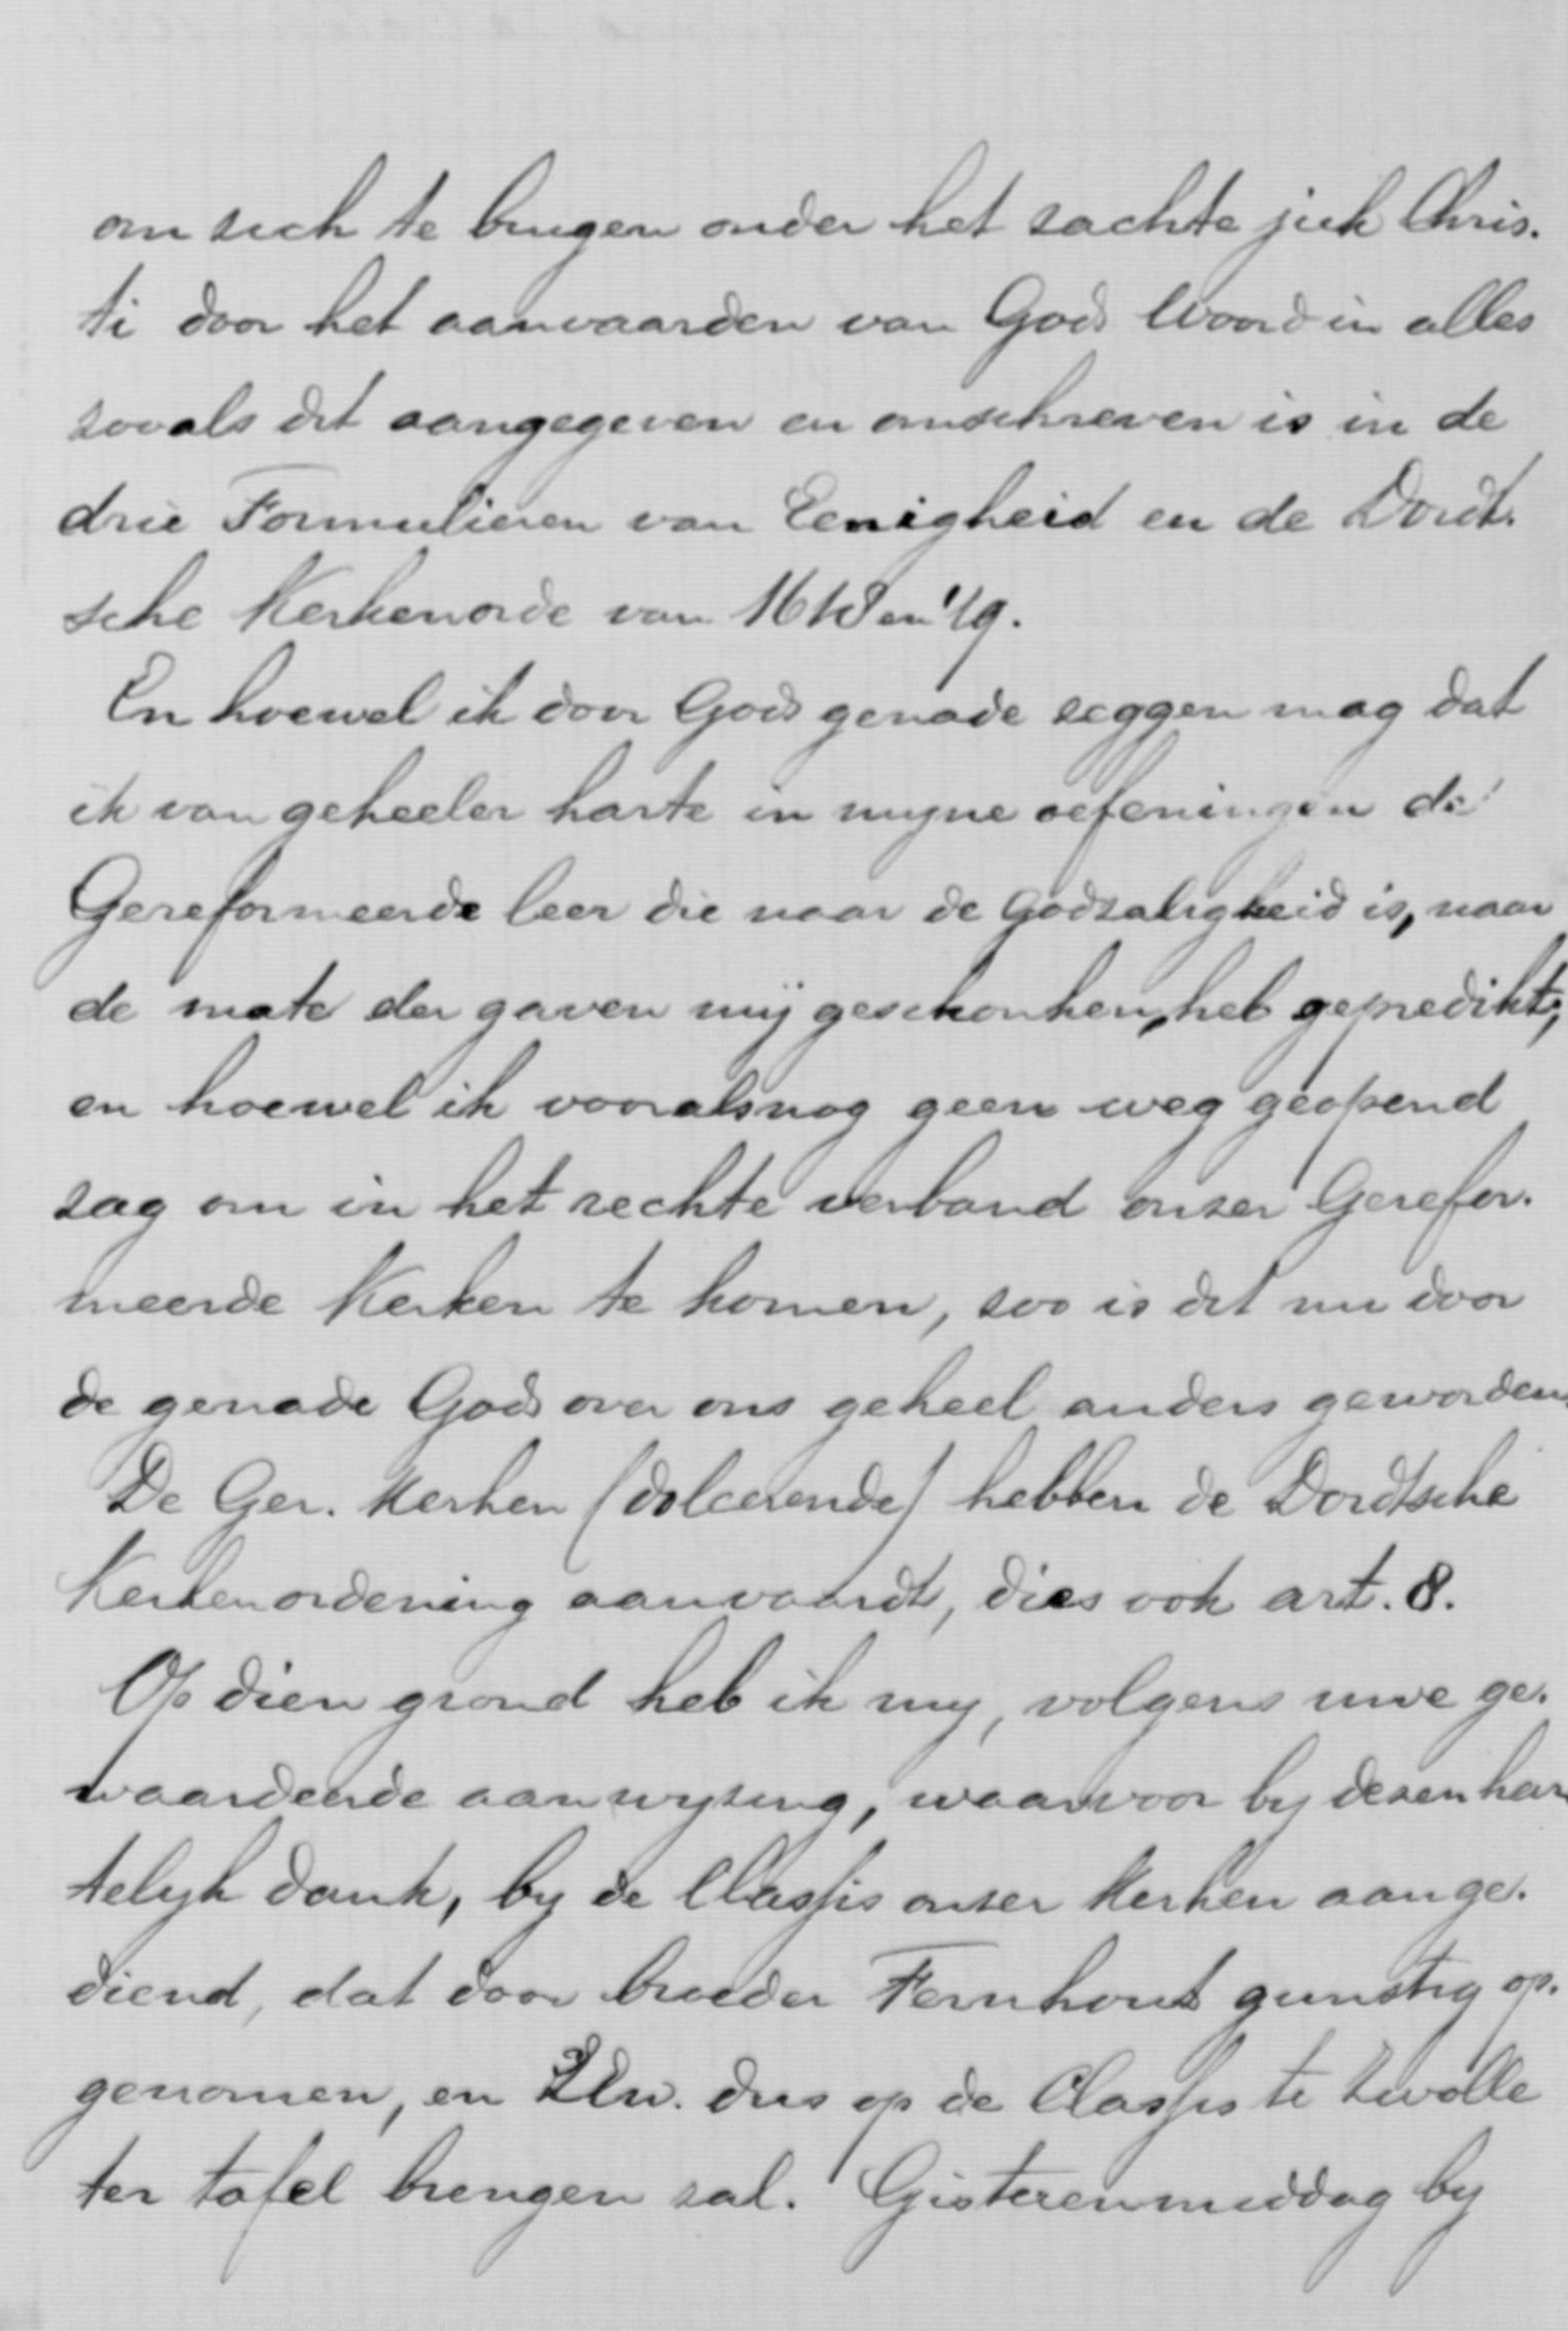 om zich te buigen onder het zachte juk Chris-
ti door het aanvaarden van Gods Woord in alles
zooals dit aangegeven en omschreven is in de
drie Formulieren van Eenigheid en de Dordt-
sche Kerkenorde van 1618 en '19.
En hoewel ik door Gods genade zeggen mag dat
ik van geheeler harte in myne oefeningen de
Gereformeerde leer die naar de Godzaligheid is, naar
de mate der gaven mij geschonken, heb gepredikt;
en hoewel ik vooralsnog geen weg geopend
zag om in het rechte verband onzer Gerefor-
meerde Kerken te komen, zoo is dit nu door
de genade Gods over ons geheel anders geworden.
De Ger. Kerken (doleerende) hebben de Dordtsche
Kerkenordening aanvaardt, dies ook art. 8.
Op dien grond heb ik my, volgens uwe ge-
waardeerde aanwyzing, waarvoor by dezen har
telyk dank, by de Classis onzer Kerken aange-
diend, dat door broeder Fernhout gunstig op-
genomen, en ZEw. dus op de Classis te Zwolle
ter tafel brengen zal. Gisterenmiddag by